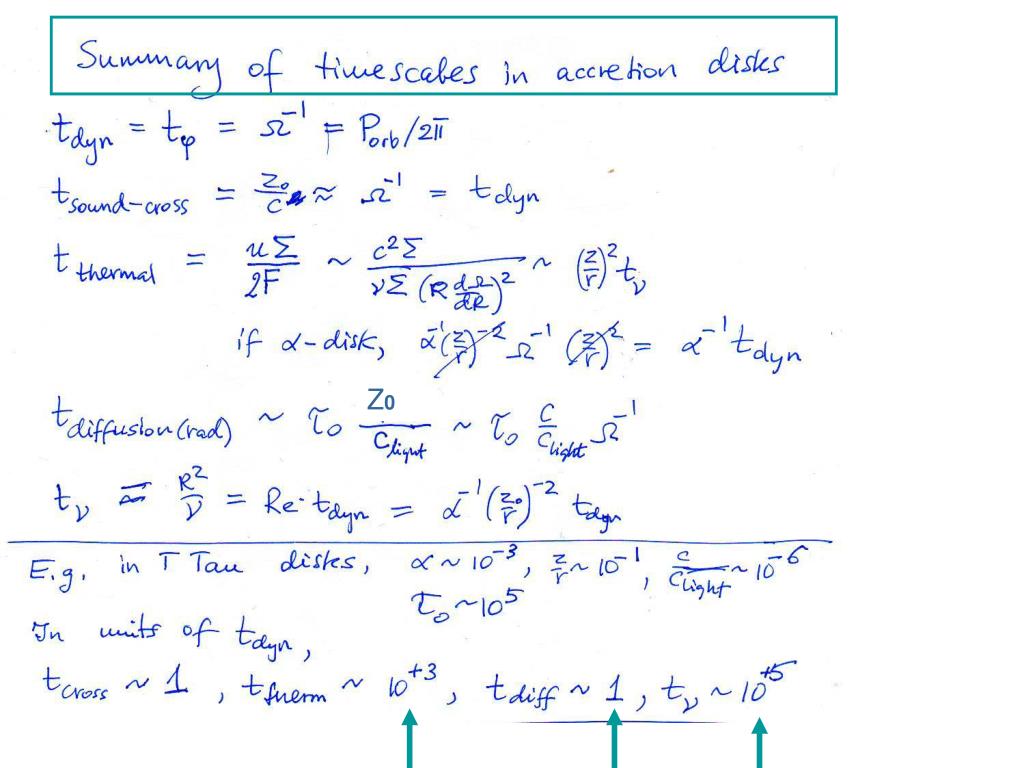 Summary of timescales in accretion disks
t_dyn = t_φ = Ω^-1 = P_orb/2π
t_sound-cross = Z₀/C ≈ Ω^-1 = t_dyn
t_thermal = uΣ/2F ~ c²Σ/νΣ(R dΩ/dR)² ~ (z/r)² t_ν
if α-disk, α^-1 (z/r)^-2 Ω^-1 (z/r)² = α^-1 t_dyn
t_diffusion(rad) ~ τ₀ Z₀/C_light ~ τ₀ C/C_light Ω^-1
t_ν ≈ R²/ν = Re·t_dyn = α^-1 (z₀/r)^-2 t_dyn
E.g. in T Tau disks, α ~ 10^-3, z/r ~ 10^-1, c/C_light ~ 10^-6
τ₀ ~ 10^5
In units of t_dyn,
t_cross ~ 1, t_therm ~ 10^+3, t_diff ~ 1, t_ν ~ 10^+5